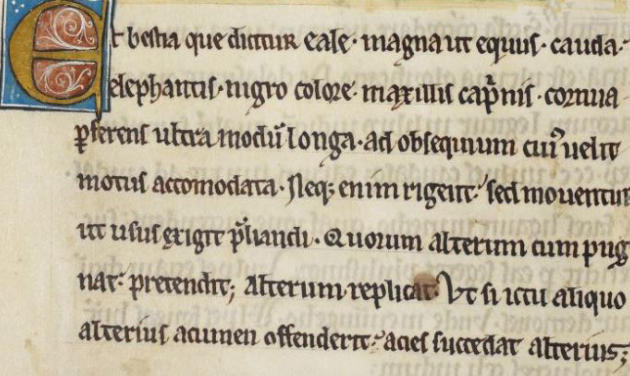 Et bestia que dicitur eale· magna ut equus· cauda·
elephantis· nigro colore· maxillis cap̄nis· cornua
p̲ferens ultra modū longa· ad obsequium cui᷒ uelit
motus accomodata· Neq; enim rigent: sed mouentur
ut usus exigit p̄liandi· Quorum alterum cum pug
nat: pretendit; alterum replicat· Vt si ictu aliquo
alterius acumen offenderit: acies succedat alterius;